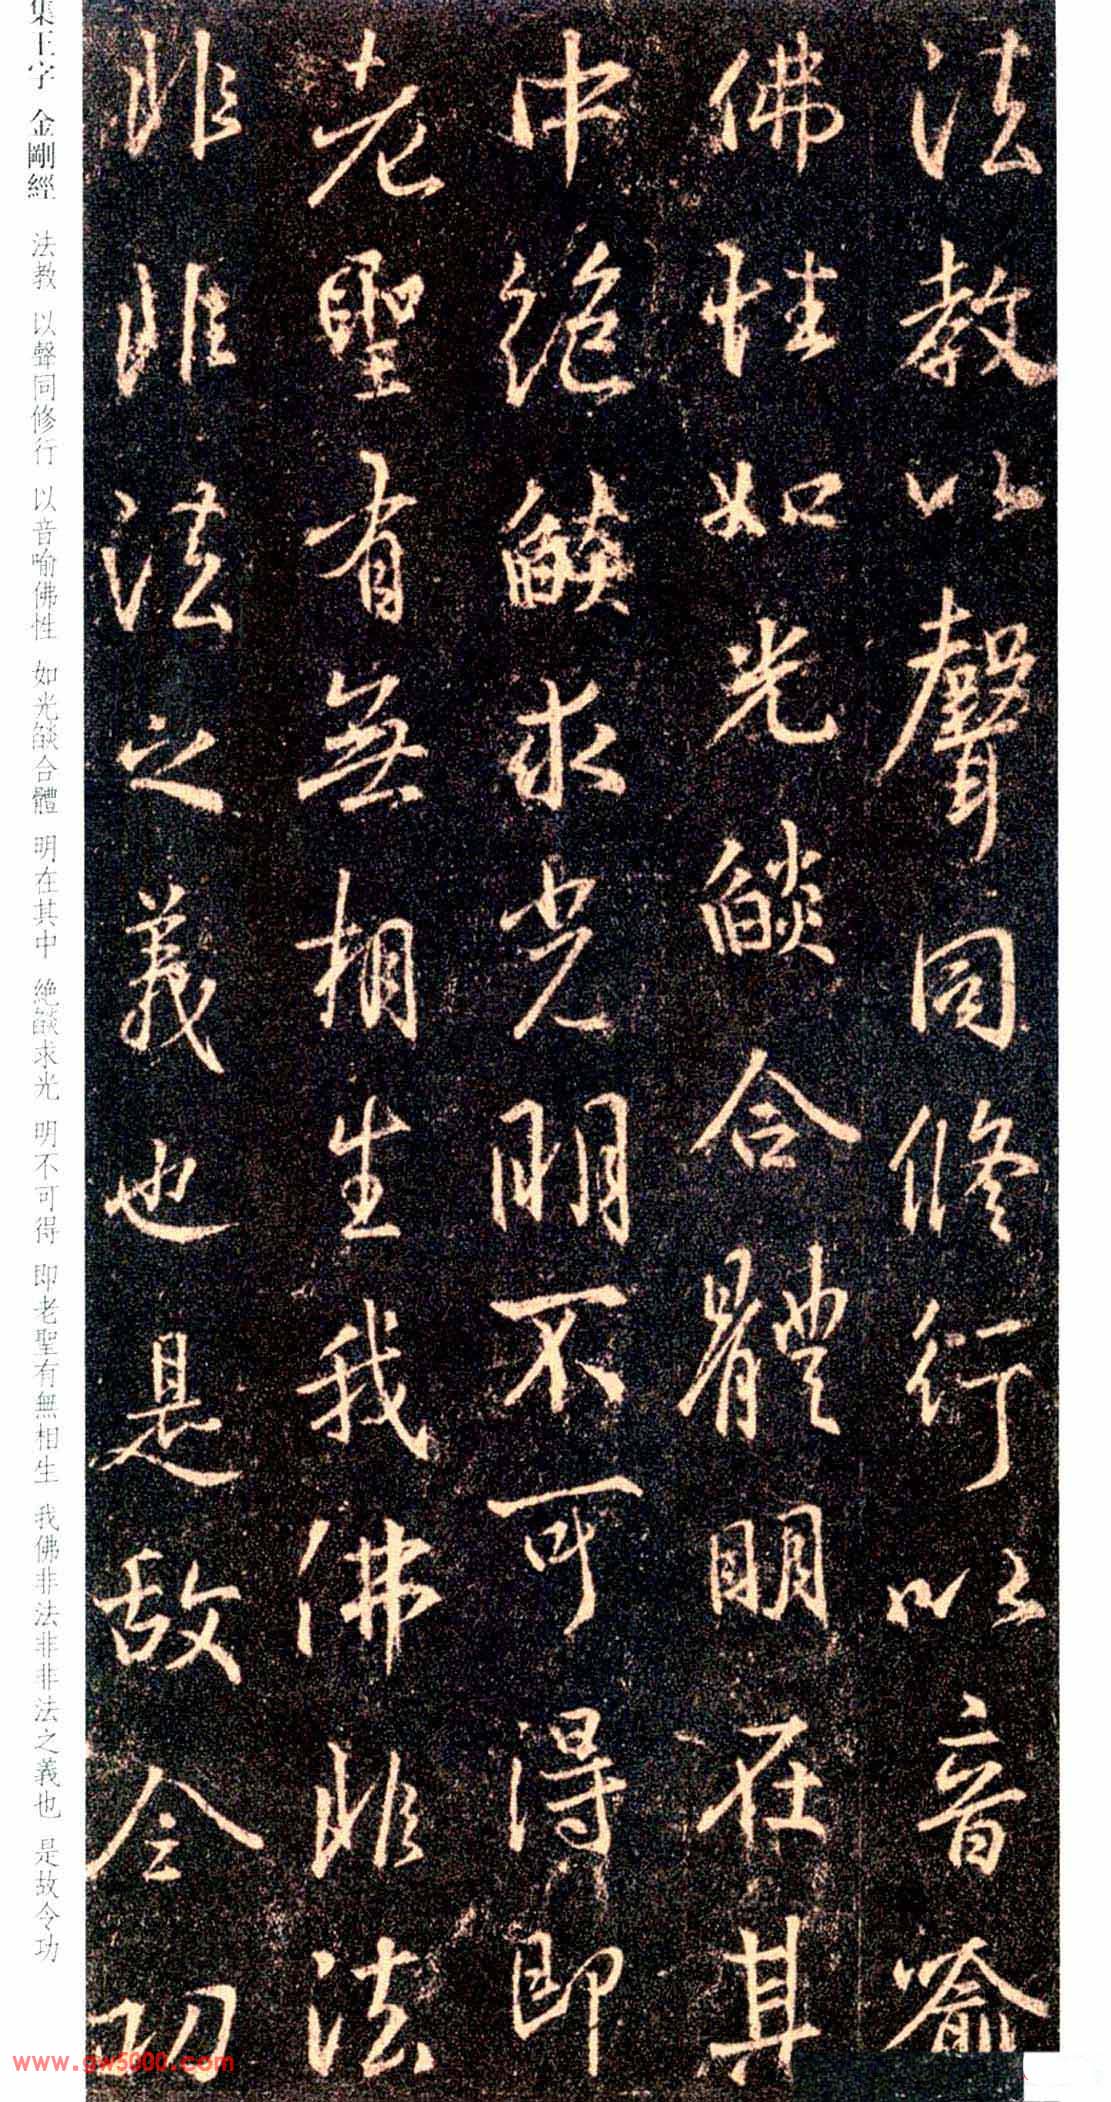 法教以聲同修行以音喻
佛性如光燄合體明在其
中絶燄求光明不可得即
老聖有無相生我佛非法
非非法之義也是故令功
集王字 金剛經 法教 以聲同修行 以音喻佛性 如光燄合體 明在其中 絶燄求光 明不可得 即老聖有無相生 我佛非法非非法之義也 是故令功
www.gw5000.com